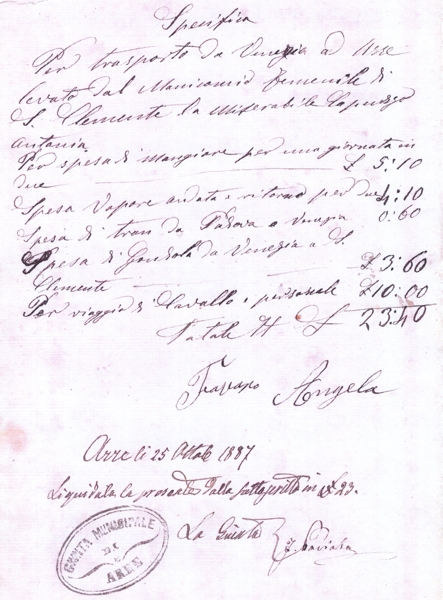 Specifica
Per trasporto da Venezia ad Arre
levato dal Manicomio Femenile di
S. Clemente la Miserabile
Antonia
Per spesa di mangiare per una giornata in
due £ 5:10
Spesa Vapore andata e ritorno per due 4:10
Spesa di tram da Padova a Venezia 0:60
Spesa di Gondola da Venezia a S.
Clemente £ 3:60
Per viaggio di Cavallo e personale £ 10:00
Totale £ 23:40
Angela
Arre li 25 Ottob 1887
Liquidata la presente dalla sottoscritta in £ 23.
La Giunta
GIUNTA MUNICIPALE
ARRE